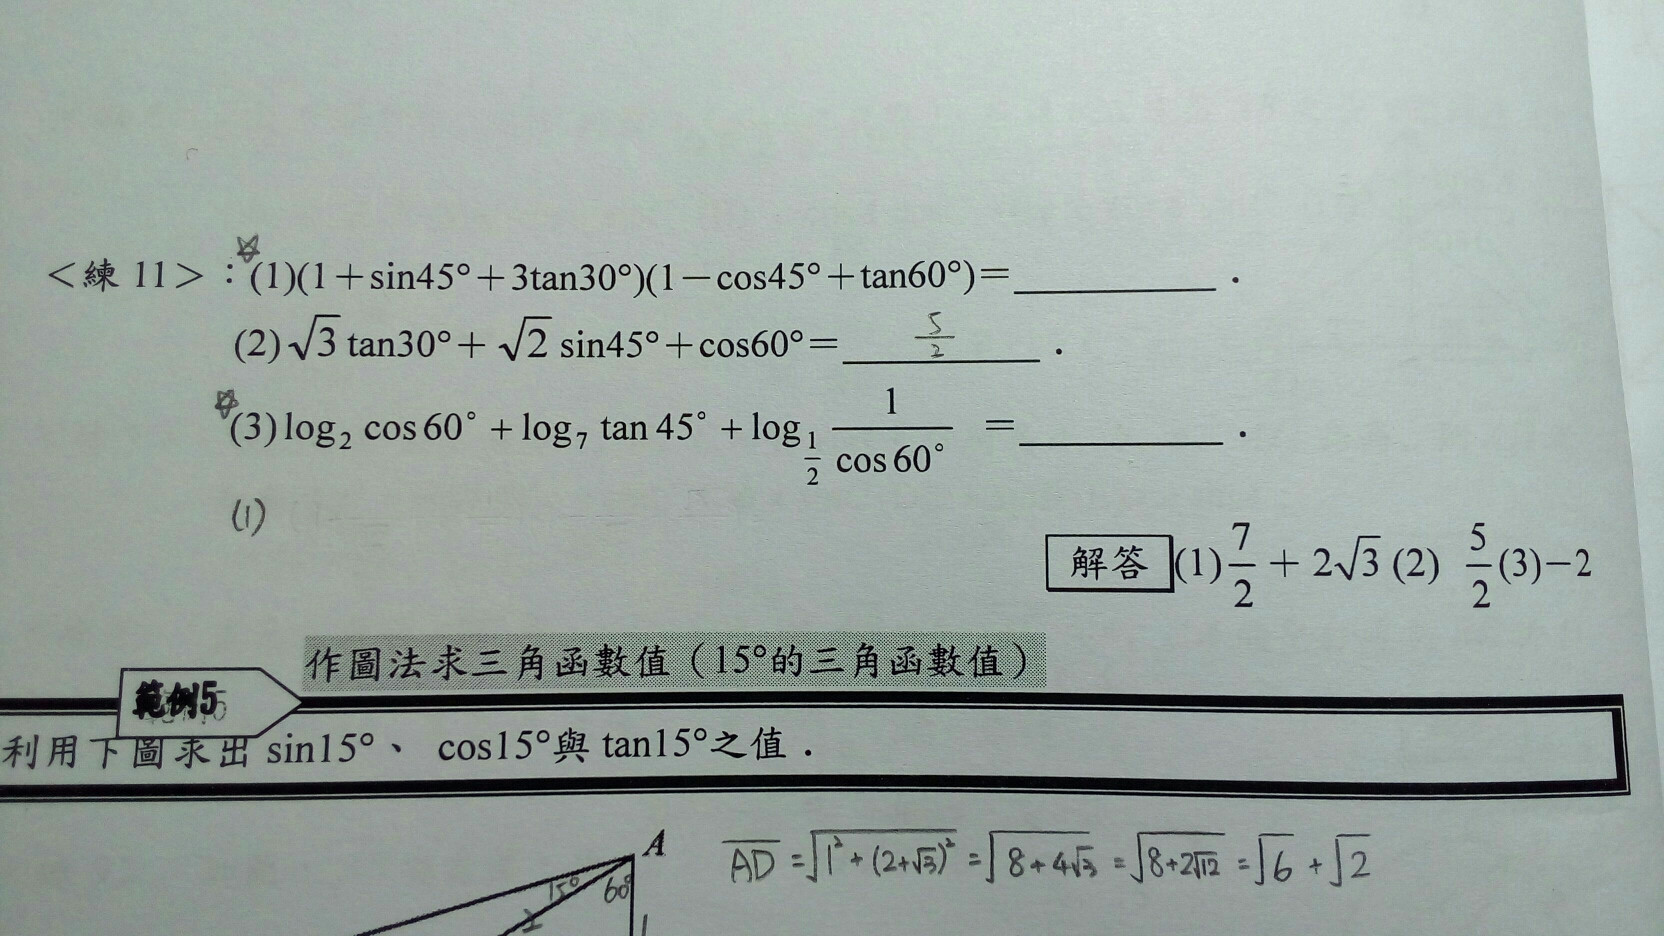 <練 11>：(1)(1+sin45°+3tan30°)(1−cos45°+tan60°)=__________ .
(2)√3 tan30°+√2 sin45°+cos60°= 5/2 .
(3)log₂ cos 60° + log₇ tan 45° + log_{1/2} 1/cos 60° =__________ .
(1)
解答 (1) 7/2 + 2√3 (2) 5/2 (3)−2
作圖法求三角函數值（15°的三角函數值）
範例5
利用下圖求出 sin15°、 cos15°與 tan15°之值．
A
AD = √(1²+(2+√3)²) = √(8+4√3) = √(8+2√12) = √6 + √2
15° 60°
2 1